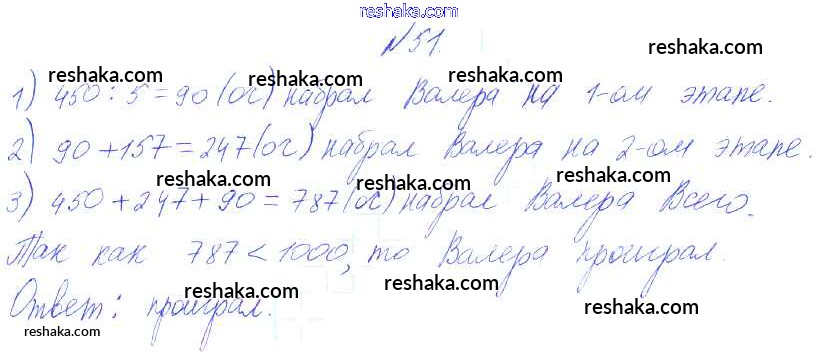 reshaka.com
№51.
reshaka.com
reshaka.com reshaka.com
1) 450 : 5 = 90 (ог) набрал Валера на 1-ом этапе.
reshaka.com reshaka.com
2) 90 + 157 = 247 (ог) набрал Валера на 2-ом этапе.
reshaka.com reshaka.com
3) 450 + 247 + 90 = 787 (ос) набрал Валера всего.
reshaka.com reshaka.com
Так как 787 < 1000, то Валера проиграл.
reshaka.com reshaka.com
Ответ: проиграл.
reshaka.com